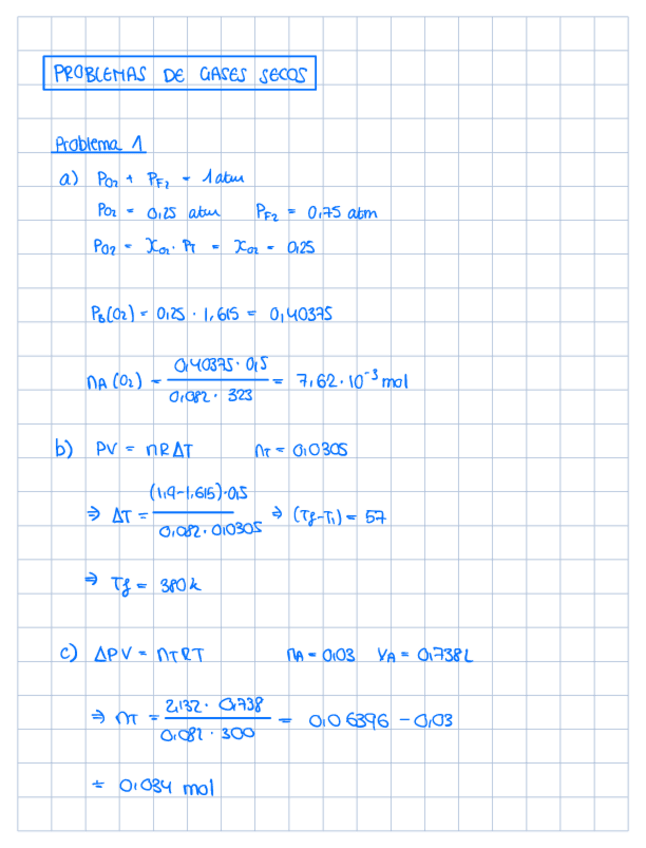 PROBLEMAS DE GASES SECOS
Problema 1
a) P_O2 + P_F2 = 1 atm
P_O2 = 0,25 atm P_F2 = 0,75 atm
P_O2 = X_O2 · P_T = X_O2 = 0,25
P_B(O2) = 0,25 · 1,615 = 0,40375
n_A (O2) = (0,40375 · 0,5) / (0,082 · 323) = 7,62 · 10^-3 mol
b) PV = nRΔT n_T = 0,0305
⇒ ΔT = ((1,9-1,615)·0,5) / (0,082 · 0,0305) ⇒ (Tf-T1) = 57
⇒ Tf = 380 k
c) ΔPV = n_T R T n_A = 0,03 V_A = 0,738 L
⇒ n_T = (2,132 · 0,738) / (0,082 · 300) = 0,06396 - 0,03
= 0,034 mol